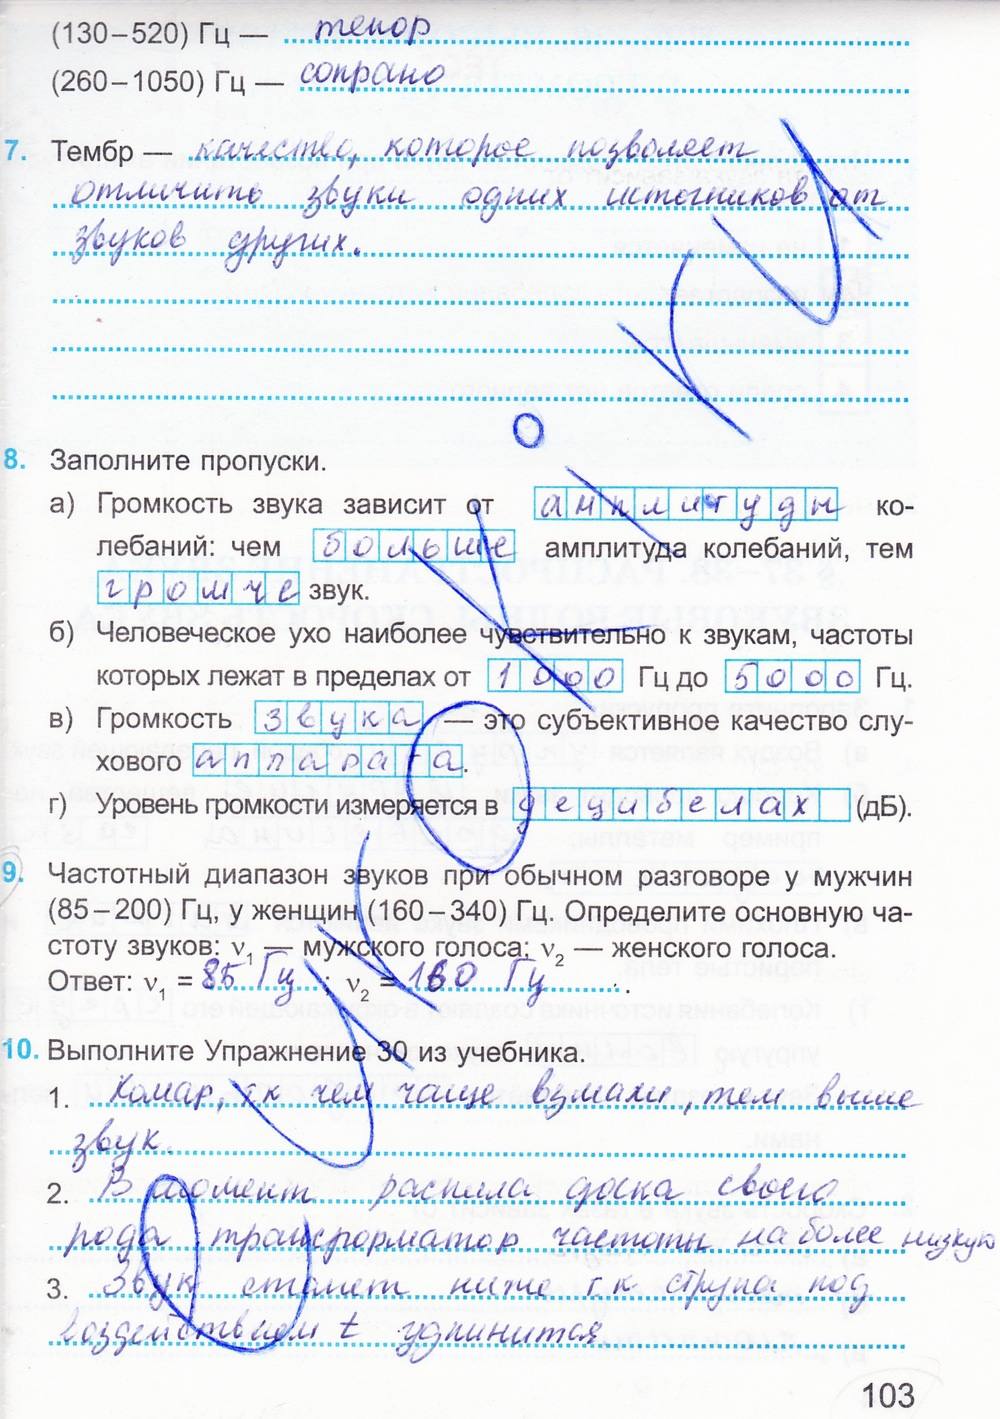 (130–520) Гц — тенор
(260–1050) Гц — сопрано
7. Тембр — качество, которое позволяет
отличить звуки одних источников от
звуков других.
8. Заполните пропуски.
а) Громкость звука зависит от амплитуды ко-
лебаний: чем больше амплитуда колебаний, тем
громче звук.
б) Человеческое ухо наиболее чувствительно к звукам, частоты
которых лежат в пределах от 1000 Гц до 5000 Гц.
в) Громкость звука — это субъективное качество слу-
хового аппарата.
г) Уровень громкости измеряется в децибелах (дБ).
9. Частотный диапазон звуков при обычном разговоре у мужчин
(85–200) Гц, у женщин (160–340) Гц. Определите основную ча-
стоту звуков: ν₁ — мужского голоса; ν₂ — женского голоса.
Ответ: ν₁ = 85 Гц ; ν₂ = 160 Гц .
10. Выполните Упражнение 30 из учебника.
1. Комар, тк чем чаще взмахи, тем выше
звук.
2. В момент распила доска своего
рода трансформатор частоты на более низкую
3. Звук станет ниже т.к струна под
воздействием t удлинится
103